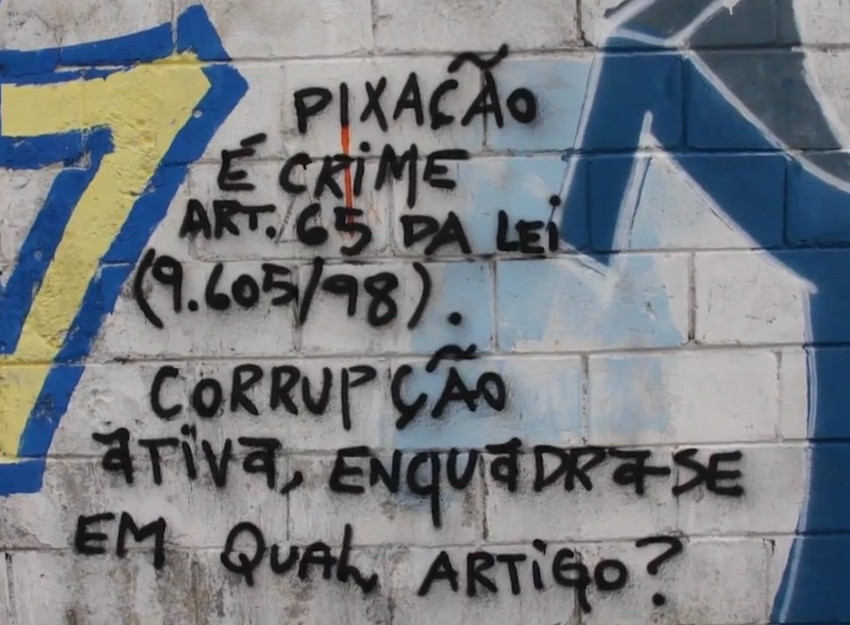 PIXAÇÃO
É CRiME
ART. 65 DA LEi
(9.605/98).
CORRUPÇÃO
aTiVa, ENQUaDRa-SE
EM QUAL ARTiGO?